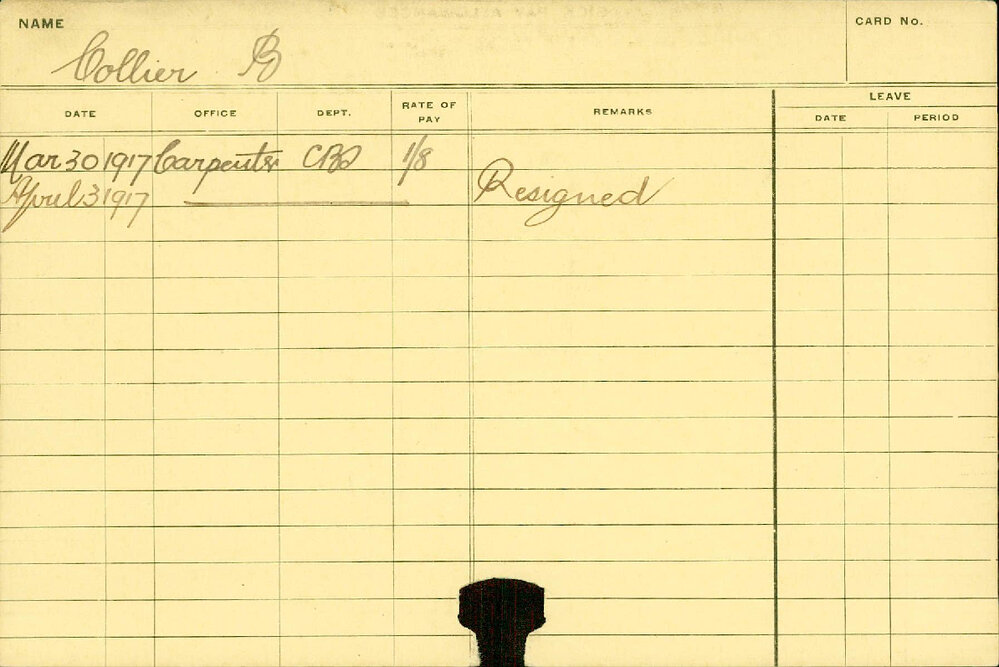 NAME
CARD No.
Collier B
DATE OFFICE DEPT. RATE OF PAY REMARKS LEAVE
DATE PERIOD
Mar 30 1917 Carpenter 1/8
April 3 1917 Resigned